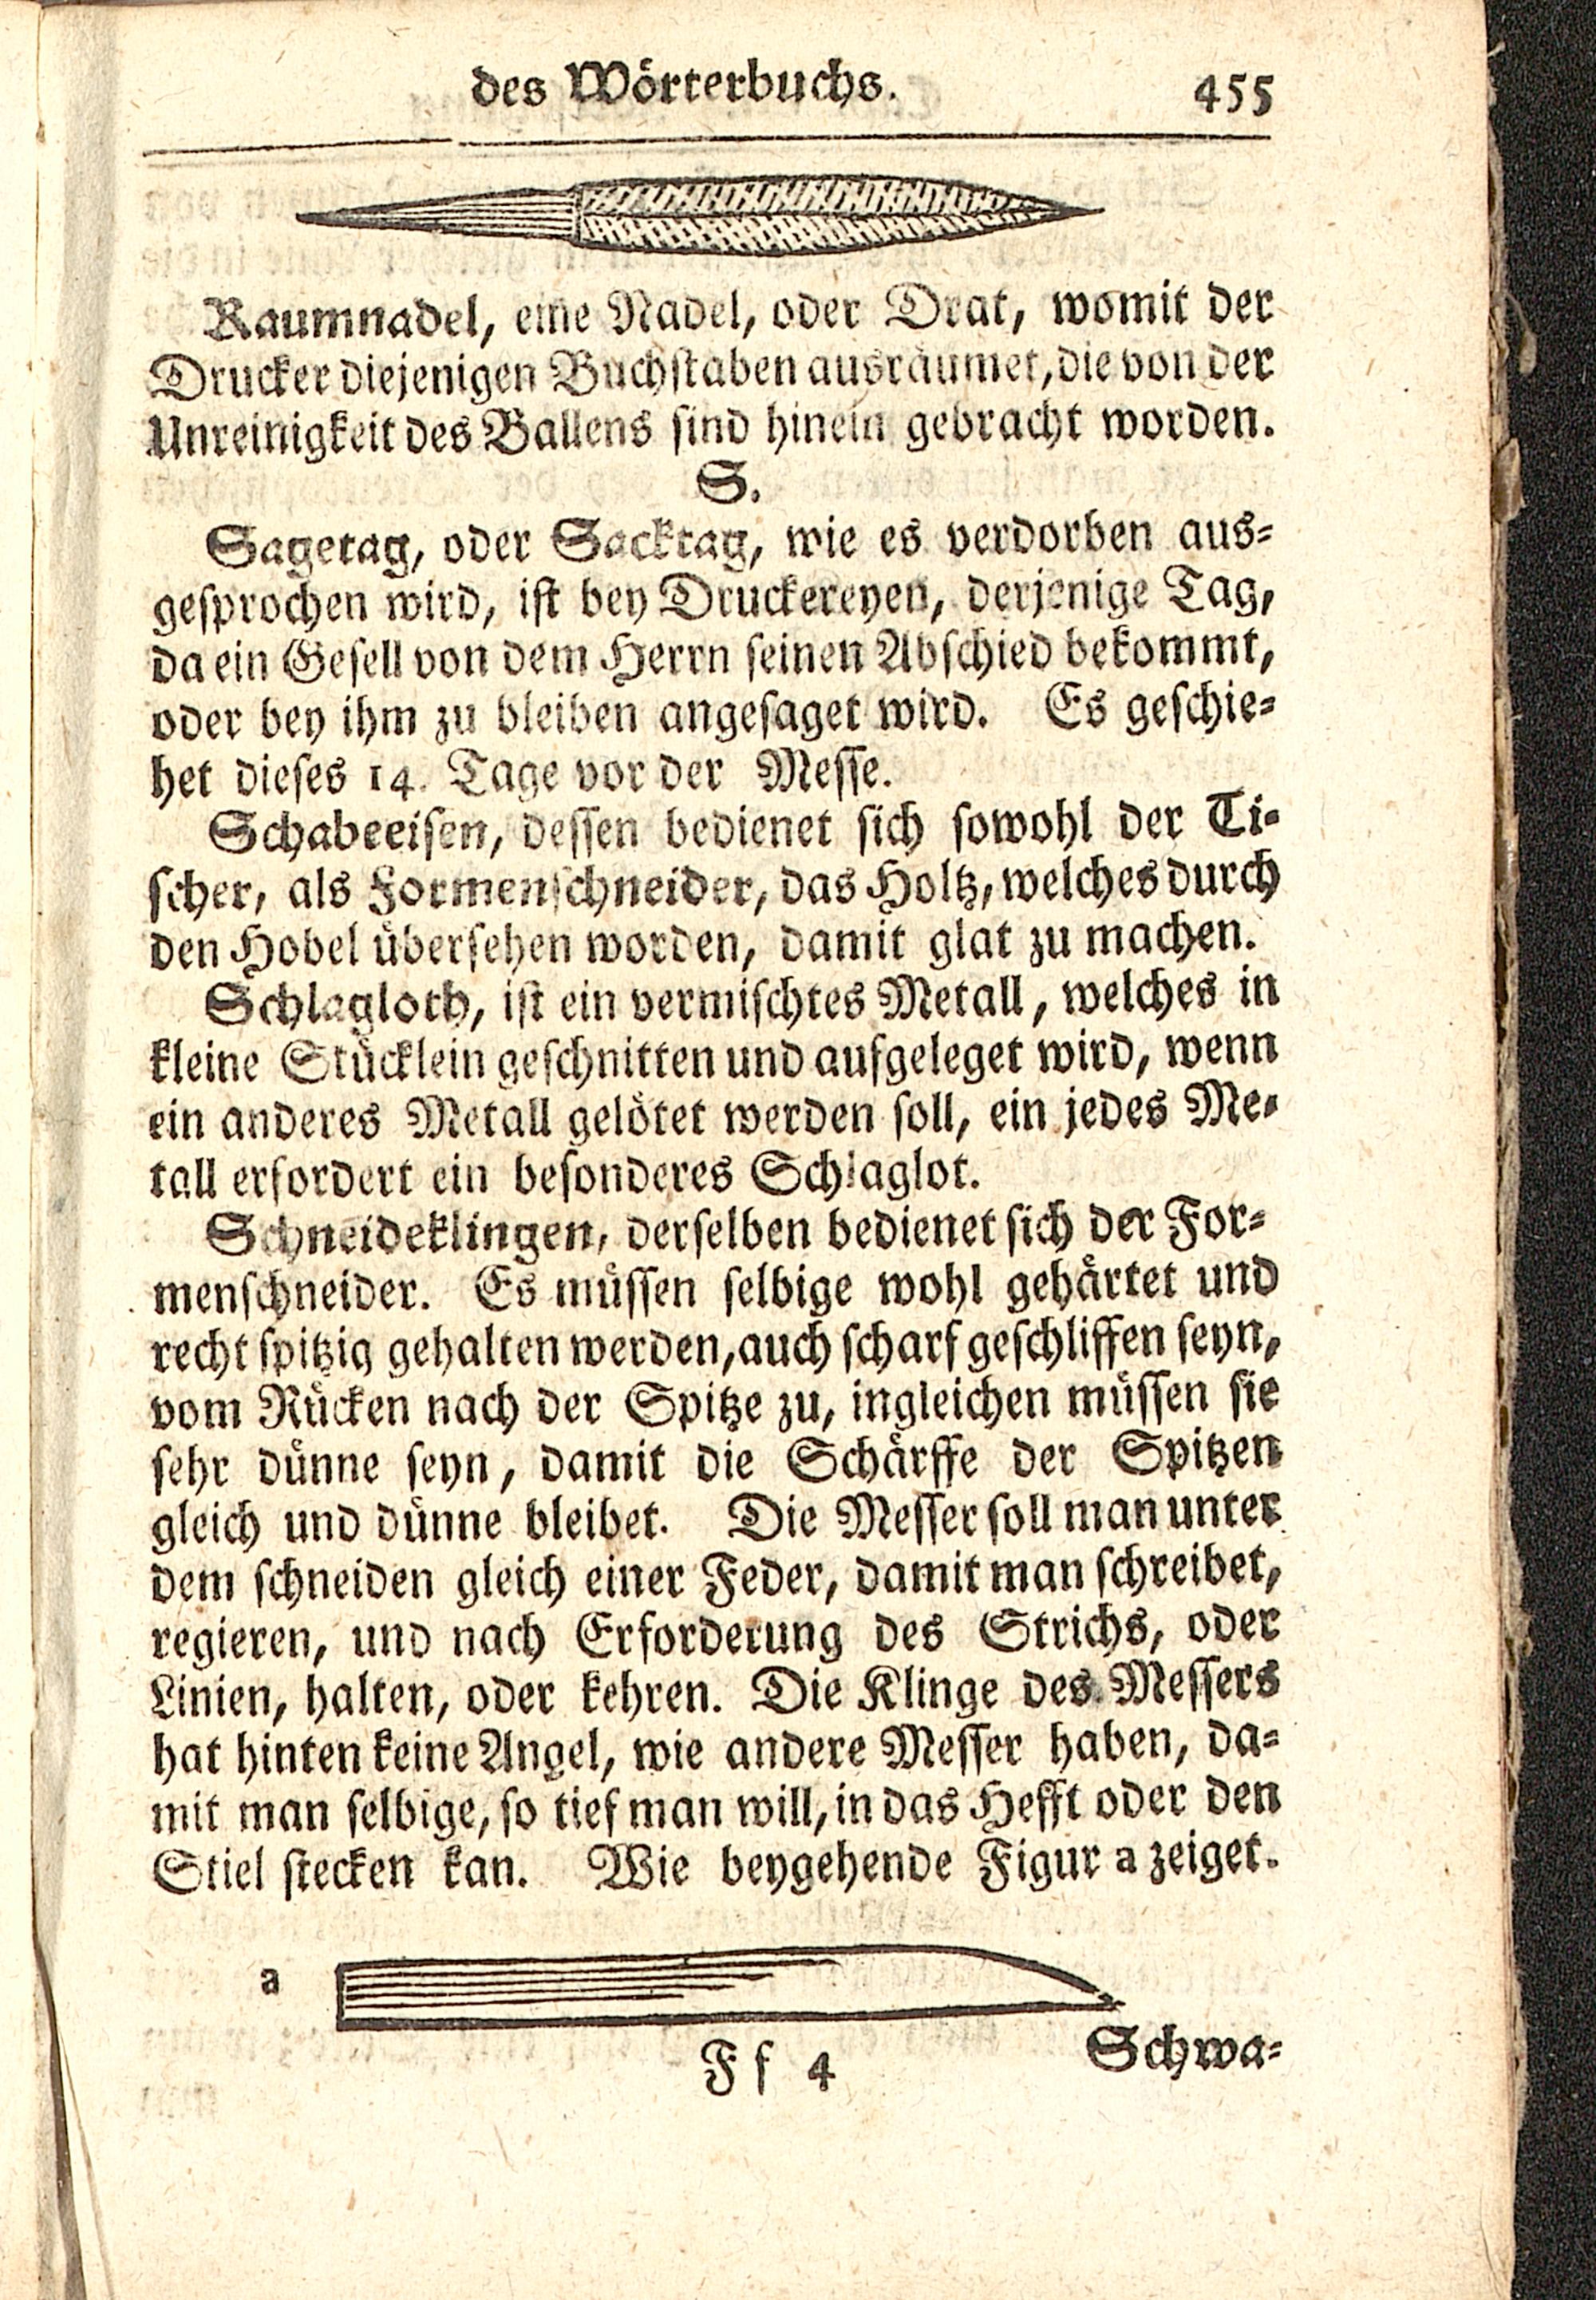 des Wörterbuchs. 455
Raumnadel, eine Nadel, oder Drat, womit der
Drucker diejenigen Buchstaben ausräumet, die von der
Unreinigkeit des Ballens sind hinein gebracht worden.
S.
Sagetag, oder Sacktag, wie es verdorben aus-
gesprochen wird, ist bey Druckereyen, derjenige Tag,
da ein Gesell von dem Herrn seinen Abschied bekommt,
oder bey ihm zu bleiben angesaget wird. Es geschie-
het dieses 14. Tage vor der Messe.
Schabeeisen, dessen bedienet sich sowohl der Ti-
scher, als Formenschneider, das Holtz, welches durch
den Hobel übersehen worden, damit glat zu machen.
Schlagloth, ist ein vermischtes Metall, welches in
kleine Stücklein geschnitten und aufgeleget wird, wenn
ein anderes Metall gelötet werden soll, ein jedes Me-
tall erfordert ein besonderes Schlaglot.
Schneideklingen, derselben bedienet sich der For-
menschneider. Es müssen selbige wohl gehärtet und
recht spitzig gehalten werden, auch scharf geschliffen seyn,
vom Rücken nach der Spitze zu, ingleichen müssen sie
sehr dünne seyn, damit die Schärffe der Spitzen
gleich und dünne bleibet. Die Messer soll man unter
dem schneiden gleich einer Feder, damit man schreibet,
regieren, und nach Erforderung des Strichs, oder
Linien, halten, oder kehren. Die Klinge des Messers
hat hinten keine Angel, wie andere Messer haben, da-
mit man selbige, so tief man will, in das Hefft oder den
Stiel stecken kan. Wie beygehende Figur a zeiget.
a
Ff 4 Schwa-